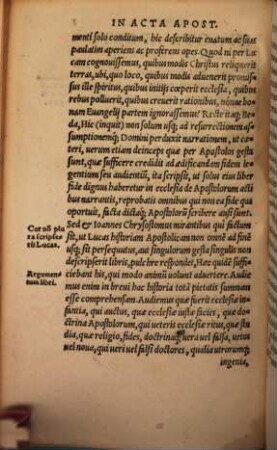 IN ACTA APOST.
menti solo conditum, hic describitur enatum ac sust
paulatim aperiens ac proferens opes. Quod ni per Lu
cam cognouissemus, quibus modis Christus reliquerit
terras, ubi, quo loco, quibus modis aduenerit promis
sus ille spiritus, quibus initijs cœperit ecclesia, quibus
rebus polluerit, quibus creuerit rationibus, nónne bo
nam Euangelij partem ignorassemus? Recte itaq; Be
da, Hic (inquit) non solum usq; ad resurrectionem as-
sumptionemq; Domini perduxit narrationem, ut cæ
teri, uerum etiam deinceps quæ per Apostolos gesta
sunt, quæ sufficere credidit ad ædificandam fidem le
gentium seu audientiũ, ita scripsit, ut solus eius liber
fide dignus haberetur in ecclesia de Apostolorum acti
bus narrantis, reprobatis omnibus qui non ea fide qua
oportuit, facta dictaq; Apostolorũ scribere ausi sunt.
Sed & Ioannes Chrysostomus mirantibus qui factum
Cur nõ plu
ra scripse-
rit Lucas.
sit, ut Lucas historiam Apostolicam non omnẽ ad finẽ
usq; sit persequutus, aut singulorum gesta singulis non
descripserit libris, pulchre respondet, Hæc quidẽ suffi-
Argumen-
tum libri.
ciebant his, qui modo animũ uolunt aduertere. Audi-
mus enim in breui hac historia totã pietatis summam
esse comprehensam. Audimus quæ fuerit ecclesiæ in-
fantia, qui auctus, quæ ecclesiæ iustæ facies, quæ do-
ctrina Apostolorum, qui ueteris ecclesiæ ritus, quæ stu
dia, religio, fides, doctrinaq; uera uel falsa, uetus
uel noua, qui ueri uel falsi doctores, qualia utrorumq;
ingenia,